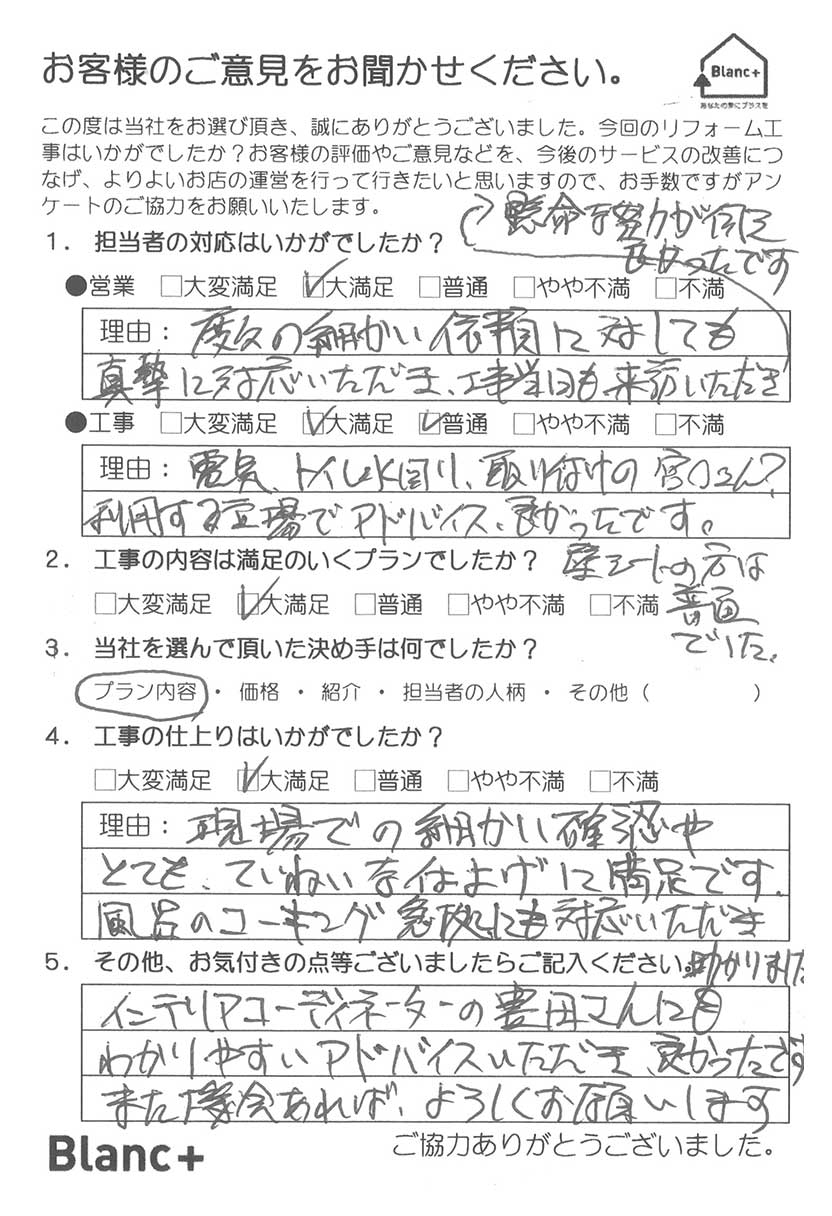 お客様のご意見をお聞かせください。
Blanc+
あなたの家にプラスを
この度は当社をお選び頂き、誠にありがとうございました。今回のリフォーム工
事はいかがでしたか？お客様の評価やご意見などを、今後のサービスの改善につ
なげ、よりよいお店の運営を行って行きたいと思いますので、お手数ですがアン
ケートのご協力をお願いいたします。
1． 担当者の対応はいかがでしたか？
●営業 □大変満足 ☑大満足 □普通 □やや不満 □不満
理由： 度々の細かい依頼に対しても
真摯に対応いただき、工事当日も、来訪いただき
懸命な努力が伺え
良かったです
●工事 □大変満足 ☑大満足 ☑普通 □やや不満 □不満
理由： 電気、トイレ水回り、取り付けの宮口さん？
利用する立場でアドバイス、良かったです。
壁シートの方は
普通
でした。
2． 工事の内容は満足のいくプランでしたか？
□大変満足 ☑大満足 □普通 □やや不満 □不満
3． 当社を選んで頂いた決め手は何でしたか？
プラン内容 ・ 価格 ・ 紹介 ・ 担当者の人柄 ・ その他（　　　　　）
4． 工事の仕上りはいかがでしたか？
□大変満足 ☑大満足 □普通 □やや不満 □不満
理由： 現場での細かい確認や
とても、ていねいな仕上げに満足です。
風呂のコーキング急拠にも対応いただき
助かりました
5． その他、お気付きの点等ございましたらご記入ください。
インテリアコーディネーターの豊田さんにも
わかりやすいアドバイスいただき、良かったです
また機会あれば、よろしくお願いします
Blanc+
ご協力ありがとうございました。